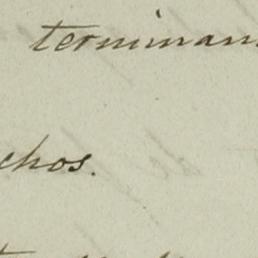 terminan
chos.